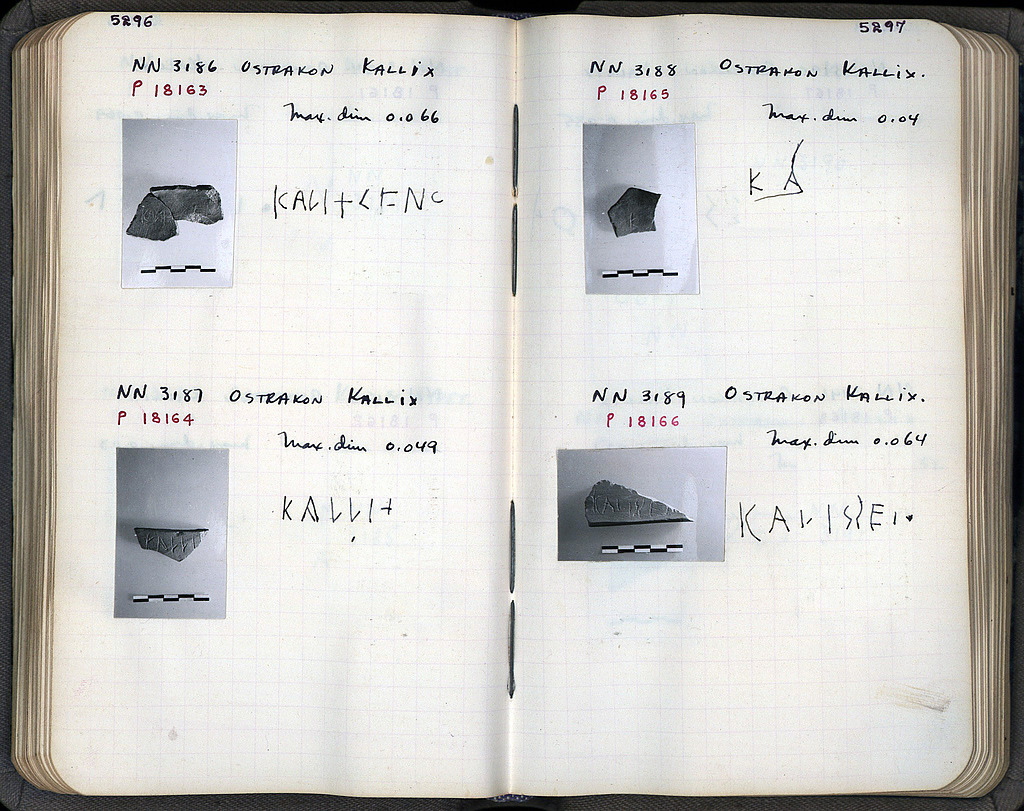 5296
NN 3186 OSTRAKON KALLIX
P 18163
Max. dim 0.066
KALI+SENC
NN 3187 OSTRAKON KALLIX
P 18164
Max. dim 0.049
KALLI+
5297
NN 3188 OSTRAKON KALLIX.
P 18165
Max. dim 0.04
KA
NN 3189 OSTRAKON KALLIX.
P 18166
Max. dim 0.064
KALISEI